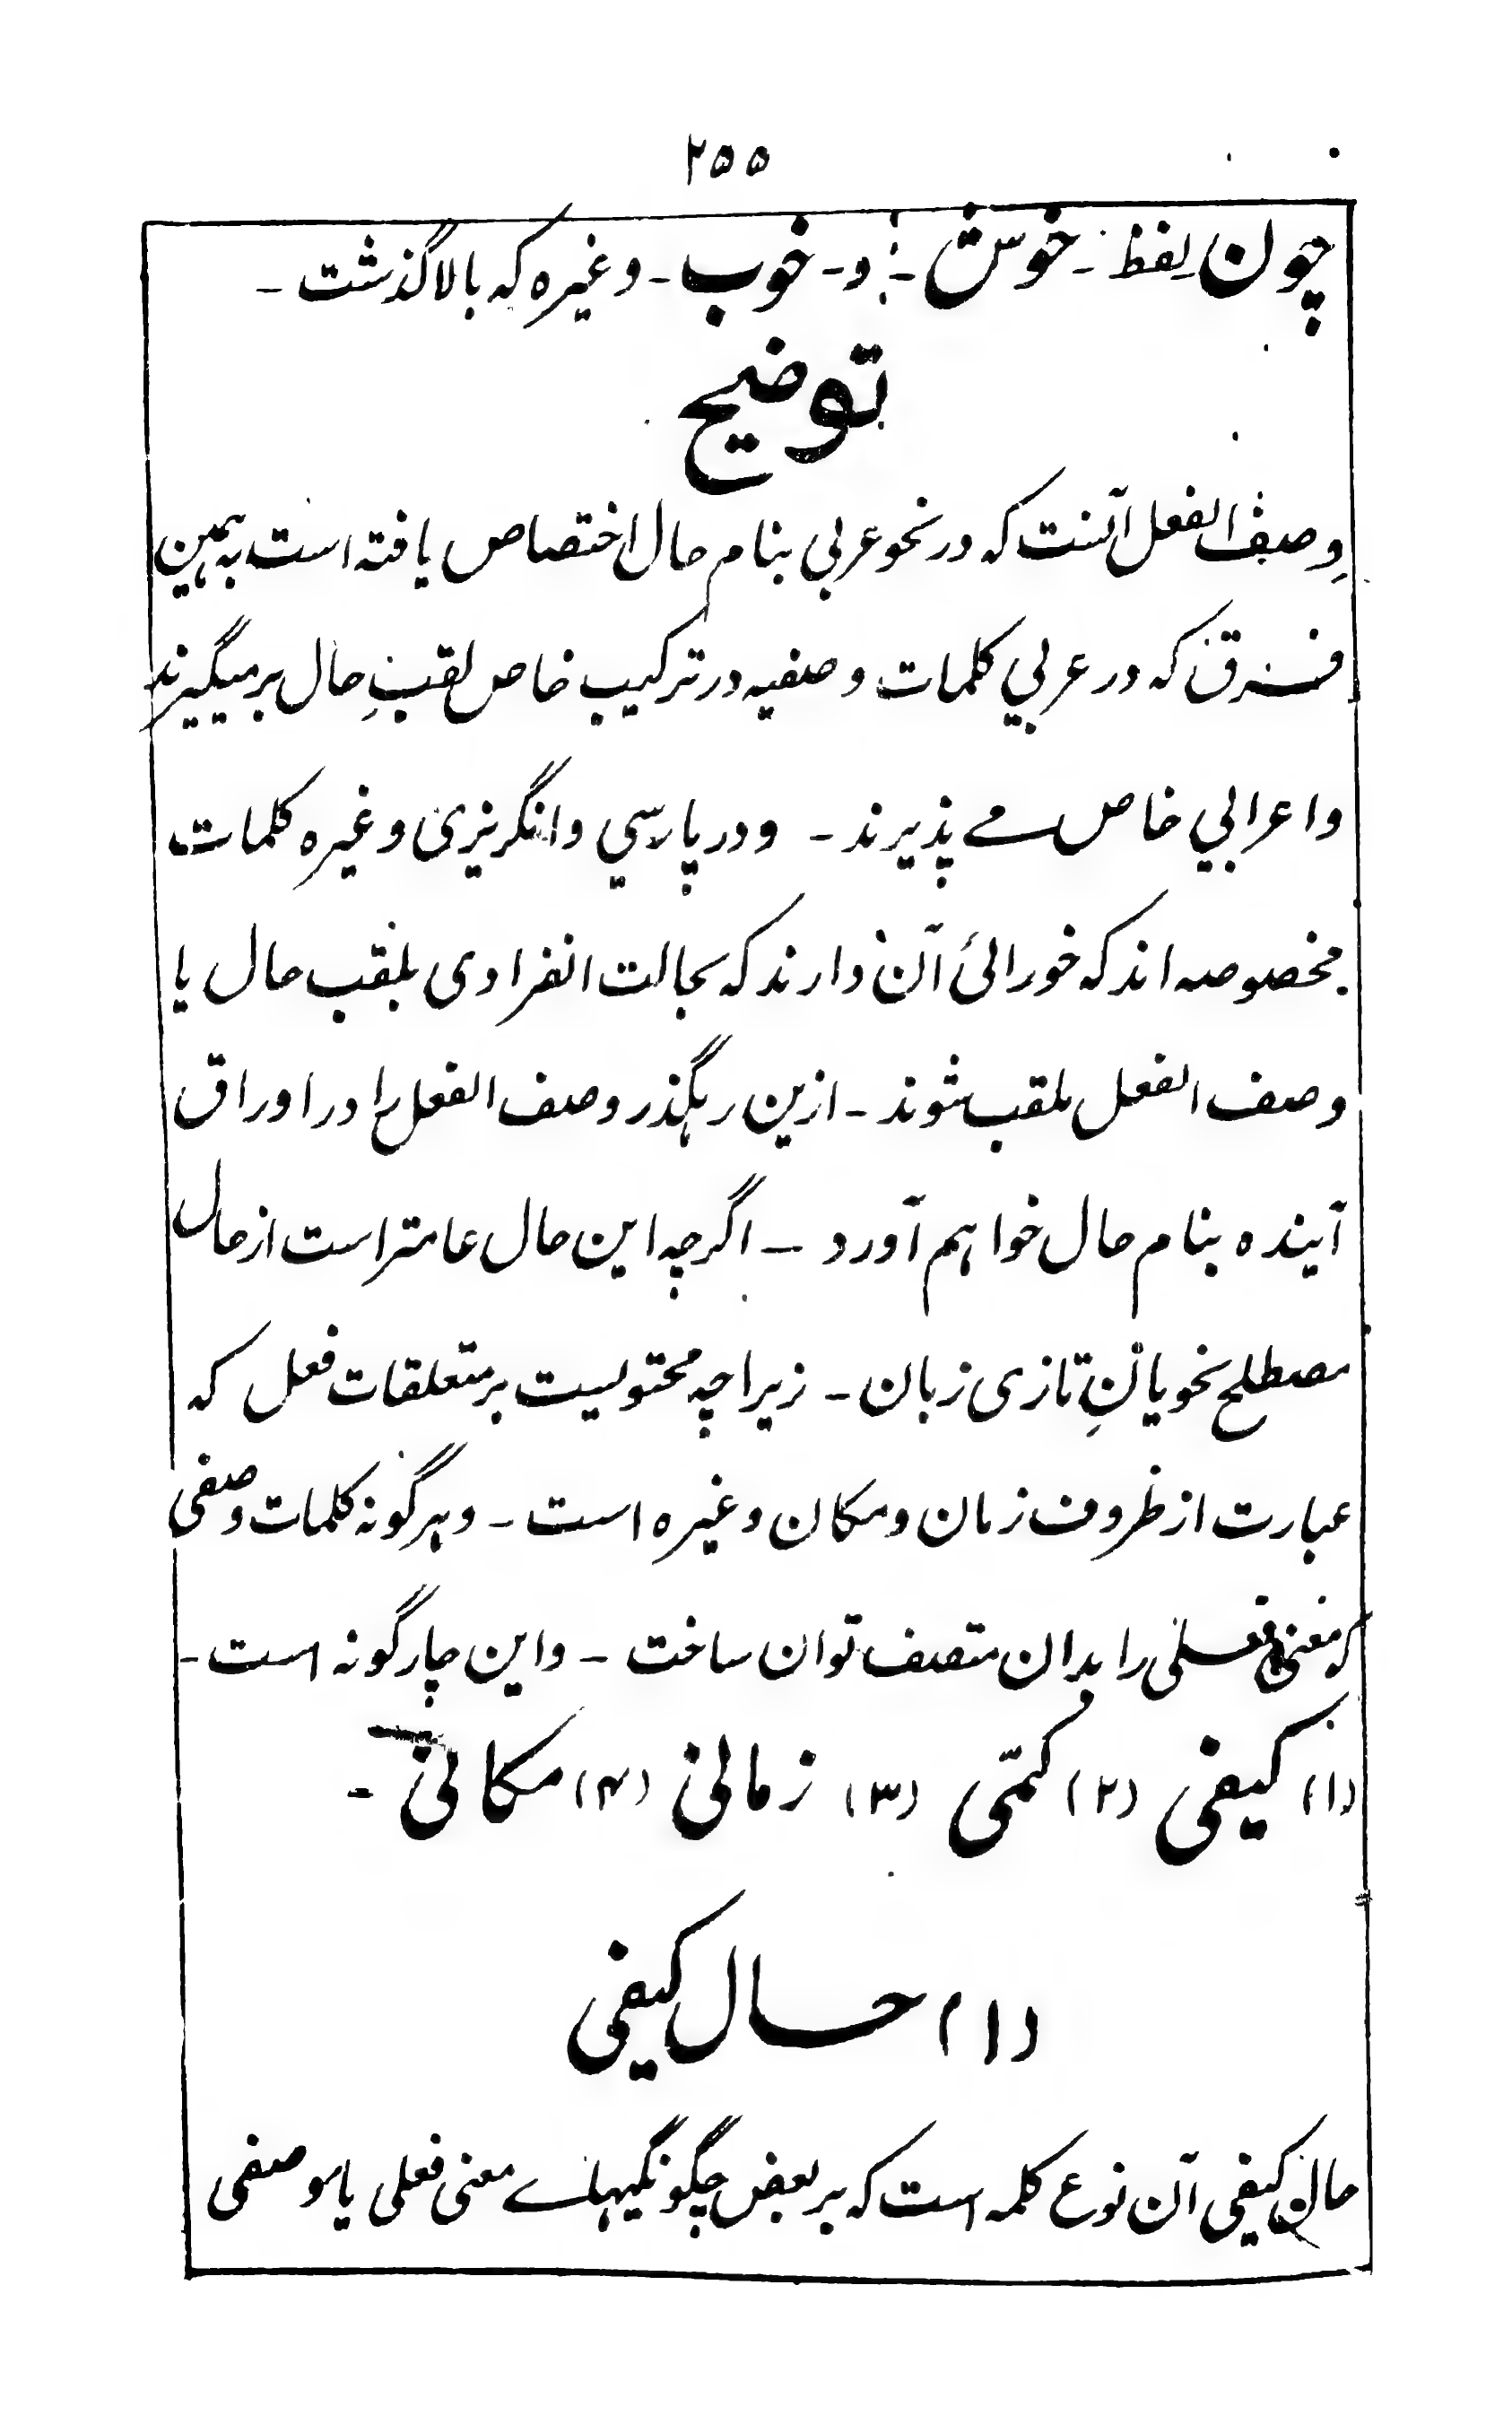 ۲۵۵
چون لفظ - خوش - و - خوب - و غیره که بالا گذشت -
توضیح
وصف الفعل آنست که در نحو عربی بنام حال اختصاص یافته است به همین
فرق که در عربي کلمات وصفیه در ترکیب خاص لقبِ حال برمیگیرند
و اعرابي خاص مے پذیرند - و در پارسي و انگریزی و غیره کلمات
مخصوصه اند که خورائ آن دارند که بحالت انفرادی بلقب حال یا
وصف الفعل ملقب شوند - ازین رہگذر وصف الفعل را در اوراق
آینده بنام حال خواہم آورد - اگرچه این حال عامتر است از حال
مصطلح نحویانِ تازی زبان - زیراچه محتویست بر متعلقات فعل که
عبارت از ظروف زمان و مکان و غیره است - و ہرگونه کلمات وصفی
که معنی فعلی را بدان متصف توان ساخت - و این چارگونه است -
(۱) کیفی (۲) کمّی (۳) زمانی (۴) مکانی -
(۱) حال کیفی
حال کیفی آن نوع کلمه است که بر بعض چگونگیہاے معنی فعلی یا وصفی